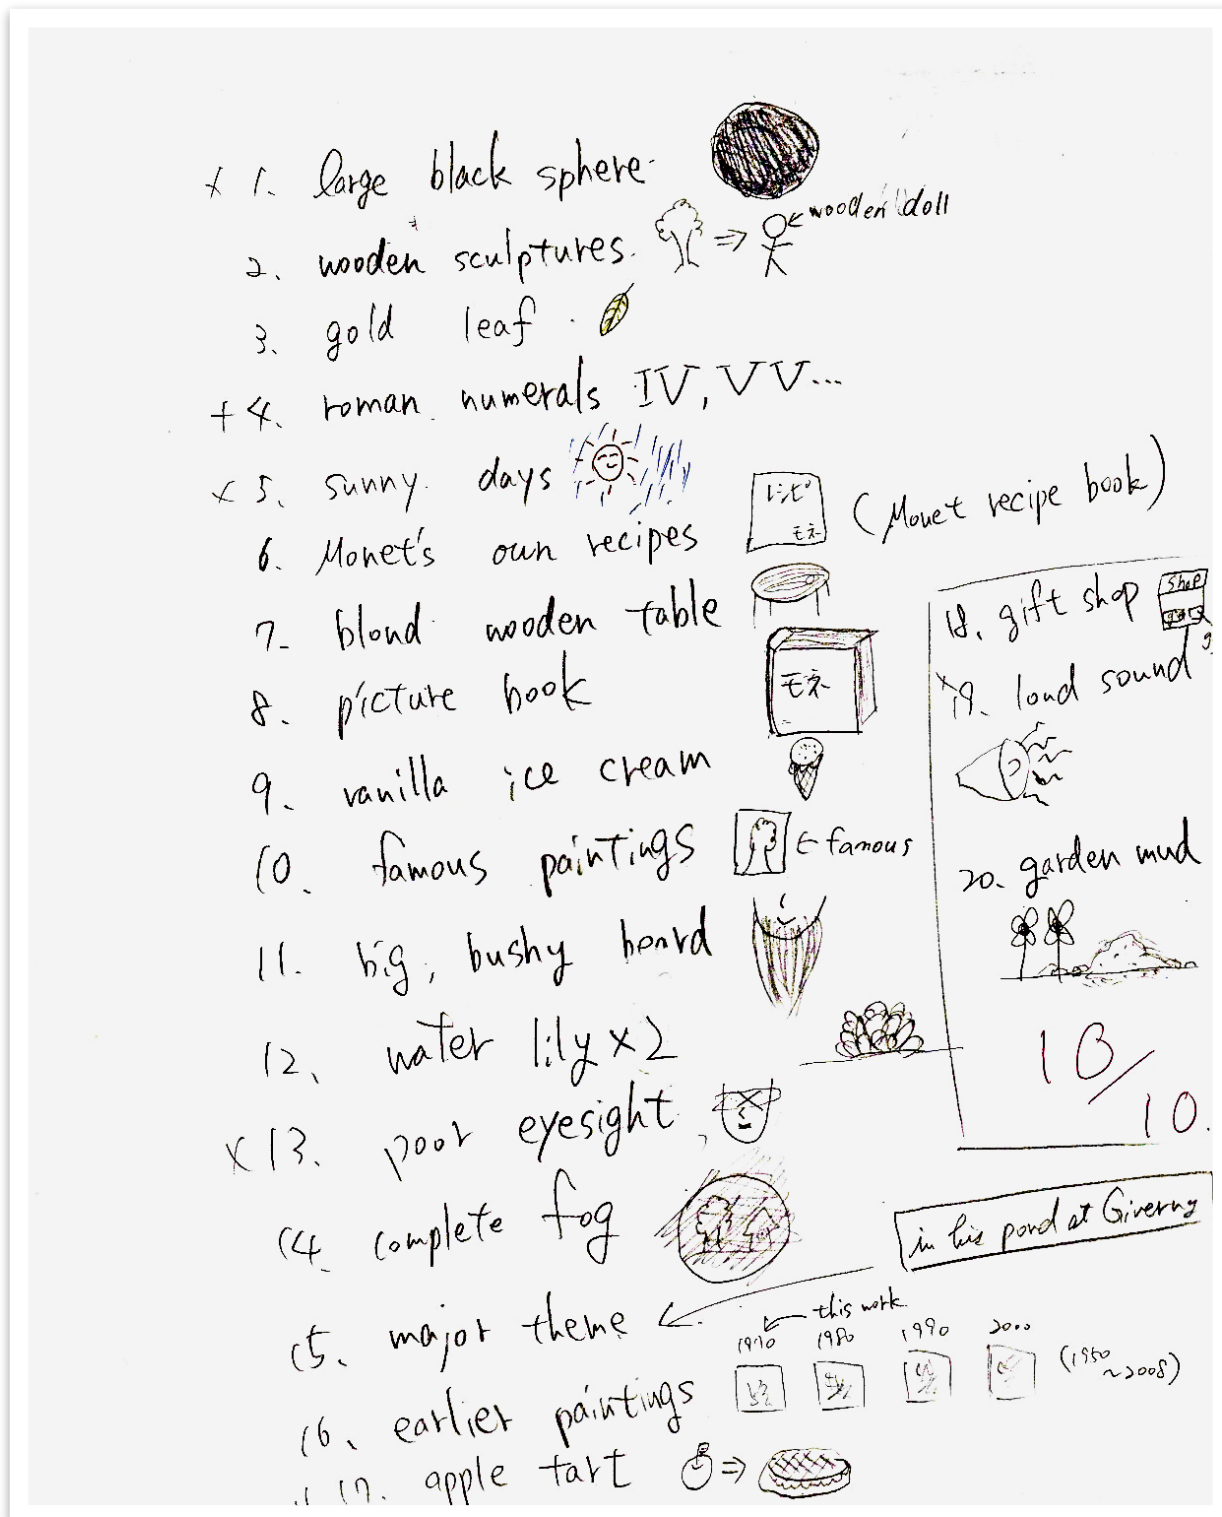 x 1. large black sphere.
← wooden doll
2. wooden sculptures.
3. gold leaf.
+ 4. roman numerals IV, VV...
x 5. sunny days
6. Monet's own recipes レシピ モネ (Monet recipe book)
7. blond wooden table
8. picture book モネ
9. vanilla ice cream
10. famous paintings ← famous
11. big, bushy beard
12. water lily x2
x 13. poor eyesight
14. complete fog
15. major theme ← in his pond at Giverny
1970 ← this work 1980 1990 2000 (1950 ~2008)
16. earlier paintings
17. apple tart ⇒
18. gift shop shop
x 19. loud sound
20. garden mud
10/10.